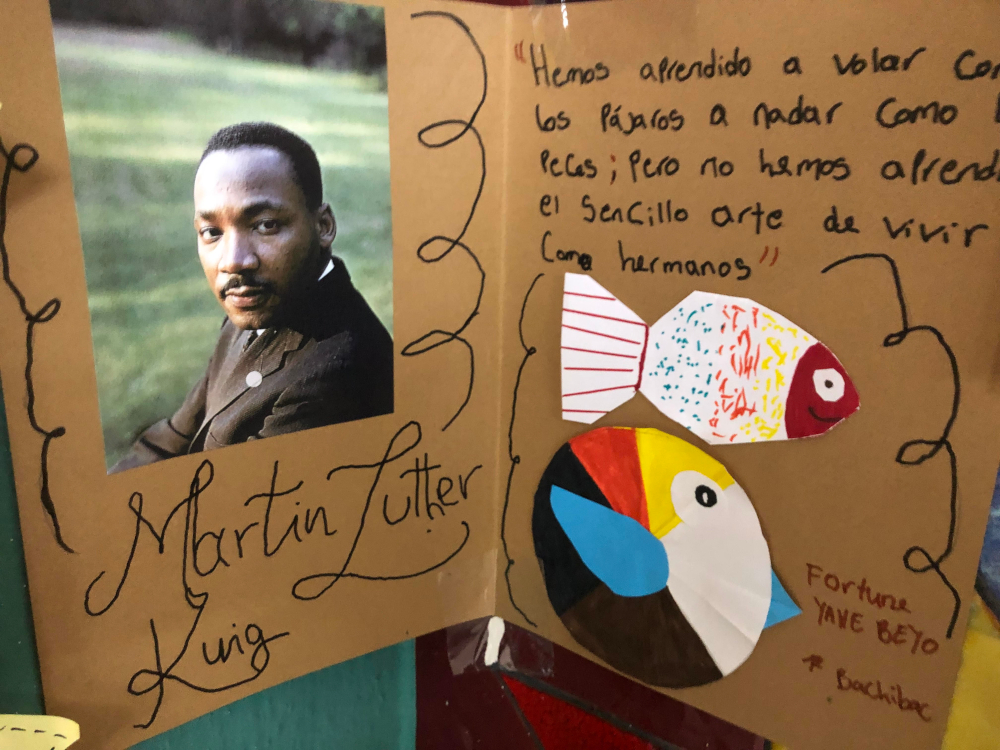 Martin Luther
King
"Hemos aprendido a volar
los Pájaros a nadar Como
Peces; Pero no hemos aprendi
el Sencillo arte de vivir
Como hermanos"
Fortune
YAVE BEYO
Bachibac